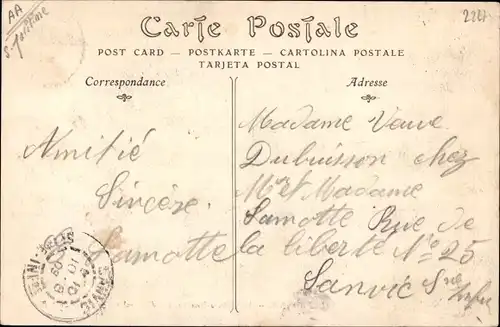 AA
S. maritime
2227
Carte Postale
POST CARD — POSTKARTE — CARTOLINA POSTALE
TARJETA POSTAL
Correspondance
Adresse
Amitié
Sincère
Lamotte
Madame Veuve
Dubuisson chez
Mr et Madame
Lamotte Rue de
la liberté No 25
Sanvic Sne Infre
SANVIC